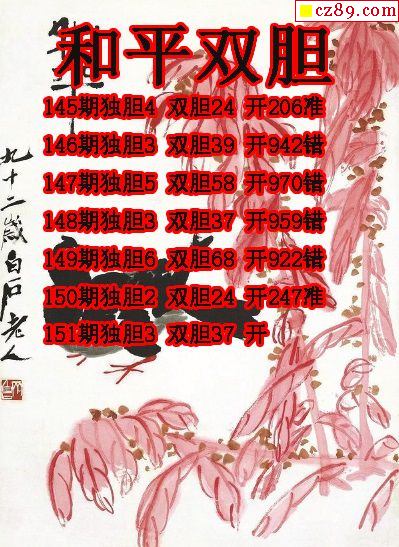 cz89.com
和平双胆
145期独胆4 双胆24 开206准
146期独胆3 双胆39 开942错
147期独胆5 双胆58 开970错
148期独胆3 双胆37 开959错
149期独胆6 双胆68 开922错
150期独胆2 双胆24 开247准
151期独胆3 双胆37 开
九十二岁白石老人